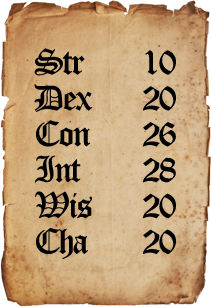 Str 10
Dex 20
Con 26
Int 28
Wis 20
Cha 20